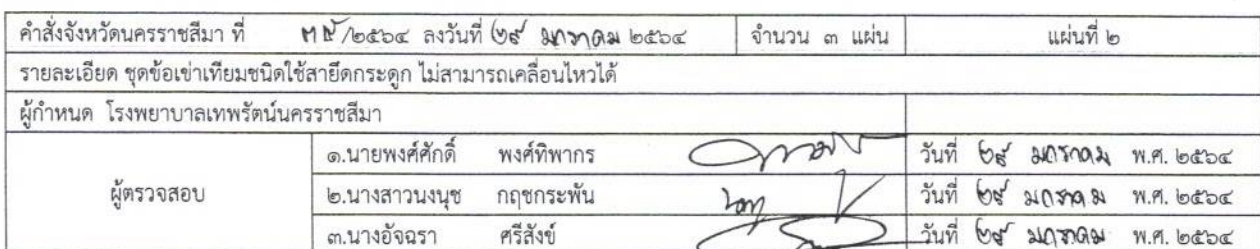 คำสั่งจังหวัดนครราชสีมา ที่ /๒๕๖๔ ลงวันที่ ๒๙ มกราคม ๒๕๖๔ จำนวน ๓ แผ่น แผ่นที่ ๒
รายละเอียด ชุดข้อเข่าเทียมชนิดใช้สายยึดกระดูก ไม่สามารถเคลื่อนไหวได้
ผู้กำหนด โรงพยาบาลเทพรัตน์นครราชสีมา
ผู้ตรวจสอบ
๑.นายพงศ์ศักดิ์ พงศ์ทิพากร วันที่ ๒๙ มกราคม พ.ศ. ๒๕๖๔
๒.นางสาวนงนุช กฤชกระพัน วันที่ ๒๙ มกราคม พ.ศ. ๒๕๖๔
๓.นางอัจฉรา ศรีสังข์ วันที่ ๒๙ มกราคม พ.ศ. ๒๕๖๔